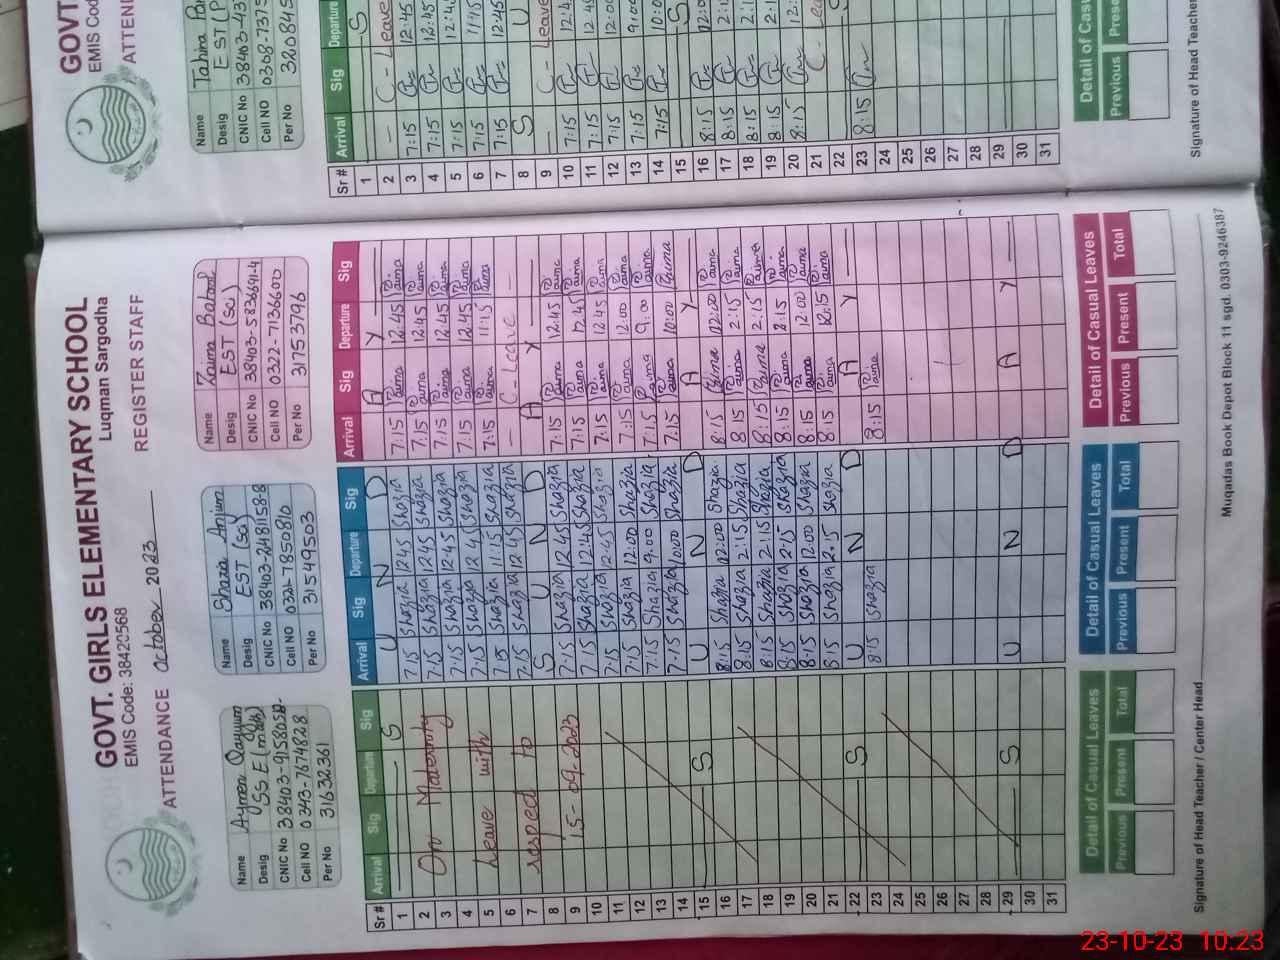 GOVT. GIRLS ELEMENTARY SCHOOL
EMIS Code: 38420568
Luqman Sargodha
ATTENDANCE october 2023
REGISTER STAFF
ATTENDANCE
Name Aymen Qayyum
Desig SSE (math)
CNIC No 38403-9158058-
Cell NO 0343-7674828
Per No 31632361
Name Shazia Anjum
Desig EST (sci)
CNIC No 38403-2481158-8
Cell NO 0321-7850810
Per No 31549503
Name Zaima Batool
Desig EST (sci)
CNIC No 38403-5836691-4
Cell NO 0322-7136600
Per No 31753796
Sr # Arrival Sig Departure Sig Arrival Sig Departure Sig Arrival Sig Departure Sig
1 S U N D A Y
2 7:15 Shazia 12:45 Shazia 7:15 12:45
3 7:15 Shazia 12:45 Shazia 7:15 12:45
4 7:15 Shazia 12:45 Shazia 7:15 12:45
5 7:15 Shazia 12:45 Shazia 7:15 12:45
6 7:15 Shazia 11:15 Shazia 7:15 11:15
7 7:15 Shazia 12:45 Shazia C-Leave
8 S U N D A Y
9 7:15 Shazia 12:45 Shazia 7:15 12:45
10 7:15 Shazia 12:45 Shazia 7:15 12:45
11 7:15 Shazia 12:45 Shazia 7:15 12:45
12 7:15 Shazia 12:00 Shazia 7:15 12:00
13 7:15 Shazia 9:00 Shazia 7:15 9:00
14 7:15 Shazia 10:00 Shazia 7:15 10:00
15 S U N D A Y
16 8:15 Shazia 12:00 Shazia 8:15 12:00
17 8:15 Shazia 2:15 Shazia 8:15 2:15
18 8:15 Shazia 2:15 Shazia 8:15 2:15
19 8:15 Shazia 2:15 Shazia 8:15 2:15
20 8:15 Shazia 12:00 Shazia 8:15 12:00
21 8:15 Shazia 12:15 Shazia 8:15 12:15
22 S U N D A Y
23 8:15 Shazia 8:15
24
25
26
27
28
29 S U N D A Y
30
31
On Maternity
Leave with
respect to
15-09-2023
Detail of Casual Leaves
Previous Present Total
Detail of Casual Leaves
Previous Present Total
Detail of Casual Leaves
Previous Present Total
Signature of Head Teacher / Center Head
Muqadas Book Depot Block 11 sgd. 0303-9246387
GOVT.
EMIS Cod
ATTEND
Name Tahira
Desig EST
CNIC No 38403-43
Cell NO 0308-737
Per No 320845
Sr # Arrival Sig Departure
1 S
2 C-Leave
3 7:15 12:45
4 7:15 12:45
5 7:15
6 7:15
7 7:15 12:45
8 S U
9 C-Leave
10 7:15
11 7:15
12 7:15
13 7:15
14 7:15
15 S
16 8:15
17 8:15
18 8:15
19 8:15
20 8:15
21
22
23 8:15
24
25
26
27
28
29
30
31
Detail of Cas
Previous Pres
Signature of Head Teacher
23-10-23 10:23